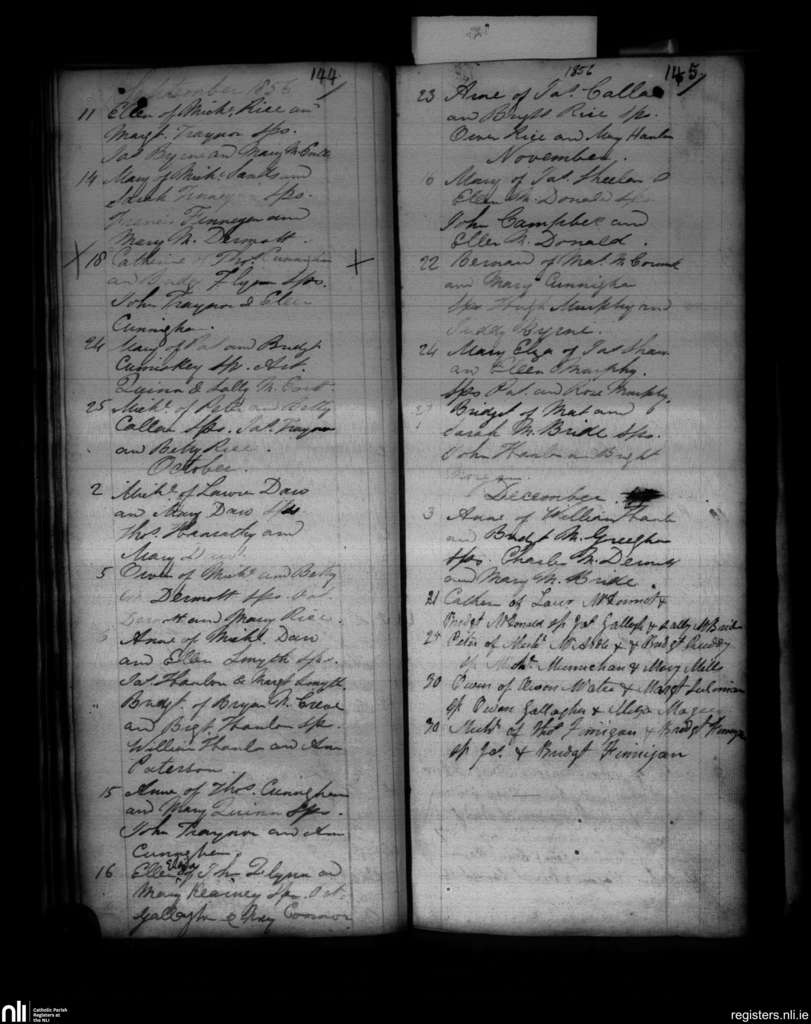 144
September 1856
11 Ellen of Mich. Rice an
Margt. Traynor Sps.
Jas Byrne and Mary McCoul
14 Mary of Mich. Sands and
Sarah Finnegan Sps.
Francis Finnegan and
Mary McDermott.
X 18 Catherine of Thos. Cunningham X
an Bridg Flynn Sps.
John Traynor & Ellen
Cunningha.
24 Mary of Pat and Bridgt
Cumiskey Sp. Art.
Quinn & Sally McCourt
25 Mich. of Peter and Betty
Callan Sps. Jas. Traynor
an Betty Rice.
October.
2 Mich. of Lawce Daw
an Mary Daw Sps
Thos Hanratty and
Mary
5 Owen of Mich. and Betty
Mc Dermott Sps. Pat
Dermott and Mary Rice.
Anne of Mich. Daw
and Ellen Smyth Sps.
Jas Hanlon & Margt Smyth.
Bridgt. of Bryan McCreve
and Bigt. Hanlon Sps.
William Hanlon and Ann
Paterson.
15 Anne of Thos. Cunningham
and Mary Quinn Sps.
John Traynor and Ann
Cunningham.
16 Ellen Eliza of Jhn Flynn an
Mary Kearney Sps. Pat.
Gallagher & Mary Connor
1856 145
23 Anne of Jas. Calla
and Bridgt Rice Sps.
Owen Rice and Mary Hanlon
November.
6 Mary of Jas. Sheelan &
Ellen McDonald Sps
John Campbell and
Ellen McDonald.
22 Bernard of Mat McCourt
and Mary Cunningha
Sps Hugh Murphy and
Byrne.
24 Mary Eliza of Jas
an Ellen Murphy.
Sps Pat. and Rose Murphy.
27 Bridget of Mat and
Sarah McBride Sps.
John Hanlon an Bright
December.
3 Anne of William Hanlo
and Bridgt McGreegha
Sps. Charles McDermott
and Mary McBride.
21 Cathern of Laur McDermot &
Bridgt McDonald sp Jas. Gallagh & Sally McBride
27 Peter of Mich. McArdle & Bridgt Ruddy
sp Mich. Minnichan & Mary Mills
30 Owen of Owen Waters & Margt
sp Owen Gallagher & Eliza Magee
30 Mich. of Thos Finnigan & Bridgt
sp Jas. & Bridgt Finnigan
nli Catholic Parish
Registers at
the NLI
registers.nli.ie